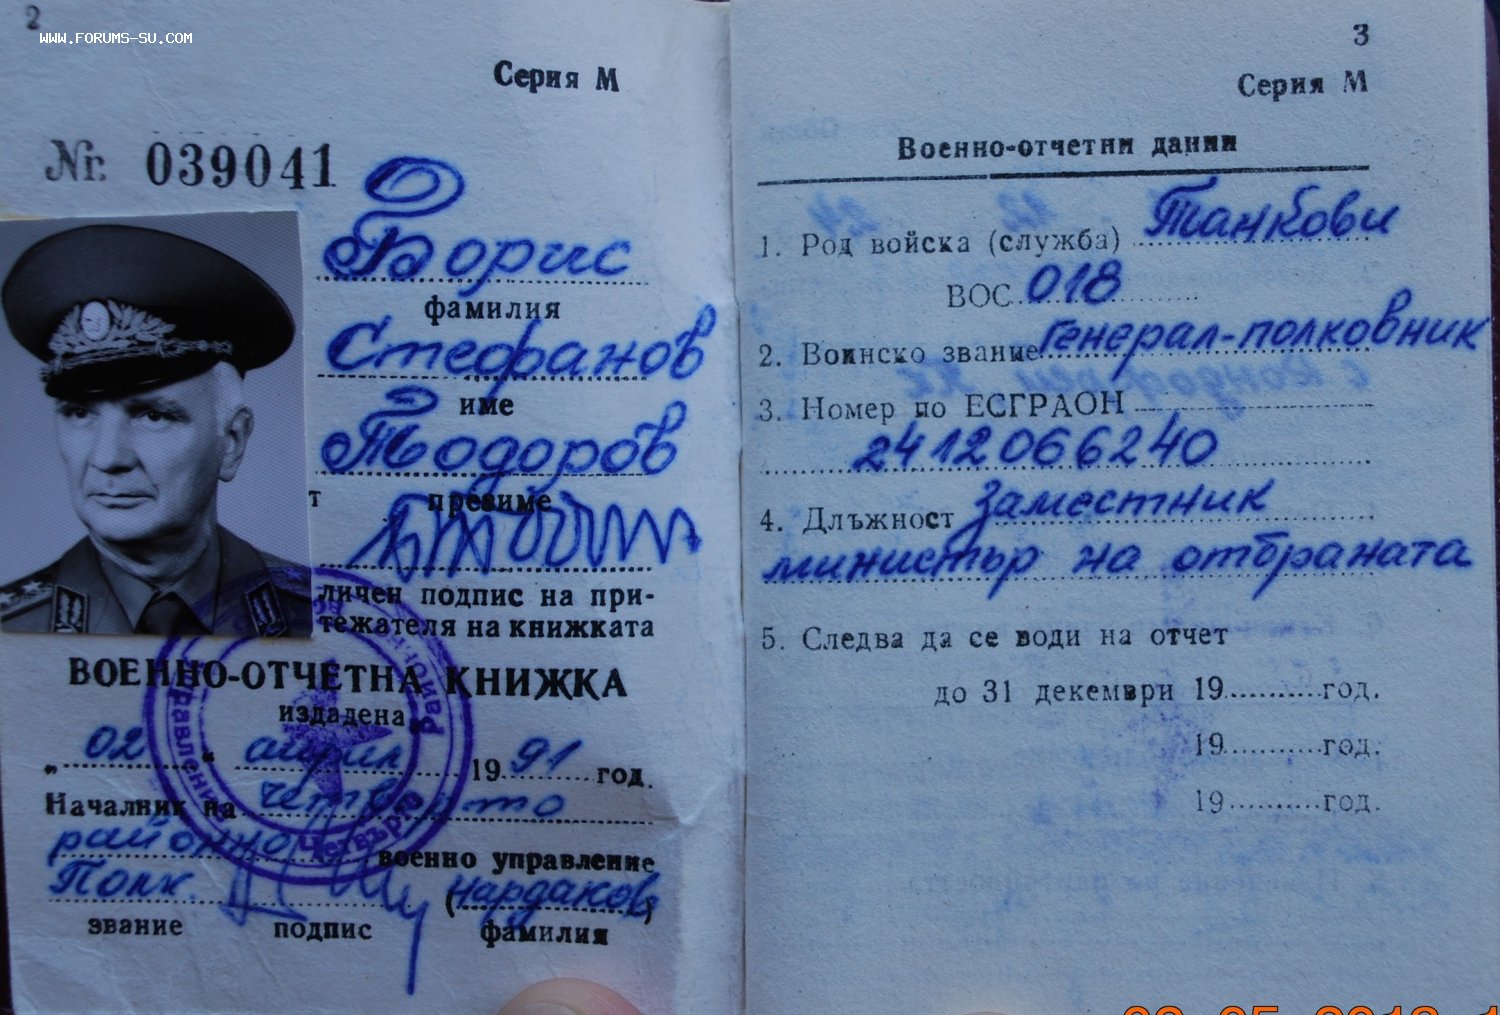 2
WWW.FORUMS-SU.COM
Серия М
Nr. 039041
Борис
фамилия
Стефанов
име
Тодоров
т презиме
личен подпис на при-
тежателя на книжката
ВОЕННО-ОТЧЕТНА КНИЖКА
издадена
„02“ април 1991 год.
Началник на четвърто
районно военно управление
Полк. (Чардаков)
звание подпис фамилия
3
Серия М
Военно-отчетни данни
1. Род войска (служба) Танкови
ВОС 018
2. Воинско звание генерал-полковник
3. Номер по ЕСГРАОН
2412066240
4. Длъжност Заместник
министър на отбраната
5. Следва да се води на отчет
до 31 декември 19..........год.
19..........год.
19..........год.